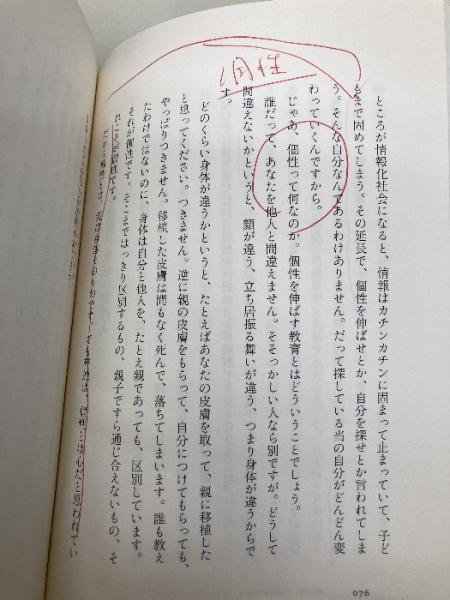 個性
ところが情報化社会になると、情報はカチンカチンに固まって止まっていて、子ど
もまで固めてしまう。その延長で、個性を伸ばせとか、自分を探せとか言われてしま
う。そんな自分なんてあるわけありません。だって探している当の自分がどんどん変
わっていくんですから。
じゃあ、個性って何なのか。個性を伸ばす教育とはどういうことでしょう。
誰だって、あなたを他人と間違えません。そそっかしい人なら別ですが。どうして
間違えないかというと、顔が違う、立ち居振る舞いが違う、つまり身体が違うからで
す。
どのくらい身体が違うかというと、たとえばあなたの皮膚を取って、親に移植した
と思ってください。つきません。逆に親の皮膚をもらって、自分につけてもらっても、
やっぱりつきません。移植した皮膚は間もなく死んで、落ちてしまいます。誰も教え
たわけではないのに、身体は自分と他人を、たとえ親であっても、区別しています。
それが個性です。そこまではっきり区別するもの、親子ですら通じ合えないもの、そ
れこそが個性です。
だから個性とは、実は身体そのものです。でも普通は、個性とは心だと思われてい
076